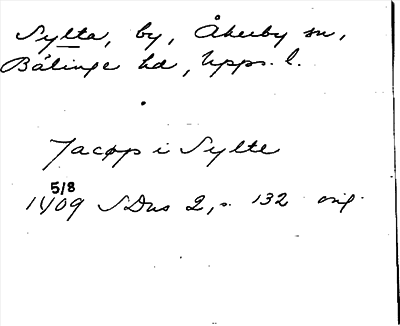 Sylta, by, Åkerby sn,
Bälinge hd, Upps. l.
Jacop i Sylte
5/8
1409 SDns 2, s. 132 orig.